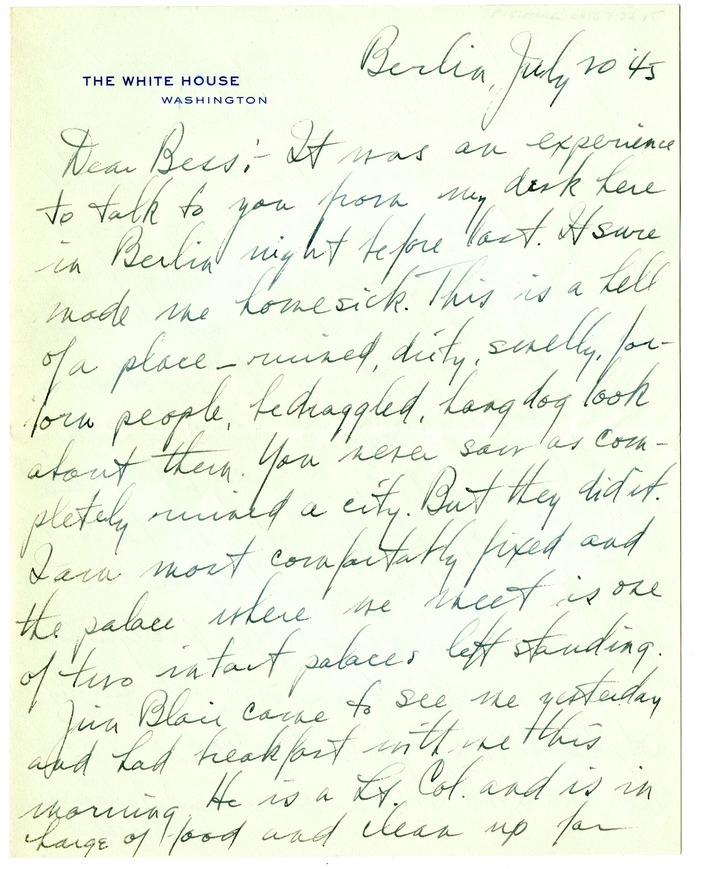 THE WHITE HOUSE
WASHINGTON
Berlin, July 20 '45
Dear Bess:- It was an experience
to talk to you from my desk here
in Berlin night before last. It sure
made me homesick. This is a hell
of a place - ruined, dirty, smelly, for-
lorn people, bedraggled, hang dog look
about them. You never saw as com-
pletely ruined a city. But they did it.
I am most comfortably fixed and
the palace where we meet is one
of two intact palaces left standing.
Jim Blair came to see me yesterday
and had breakfast with me this
morning. He is a Lt. Col. and is in
charge of food and clean up for